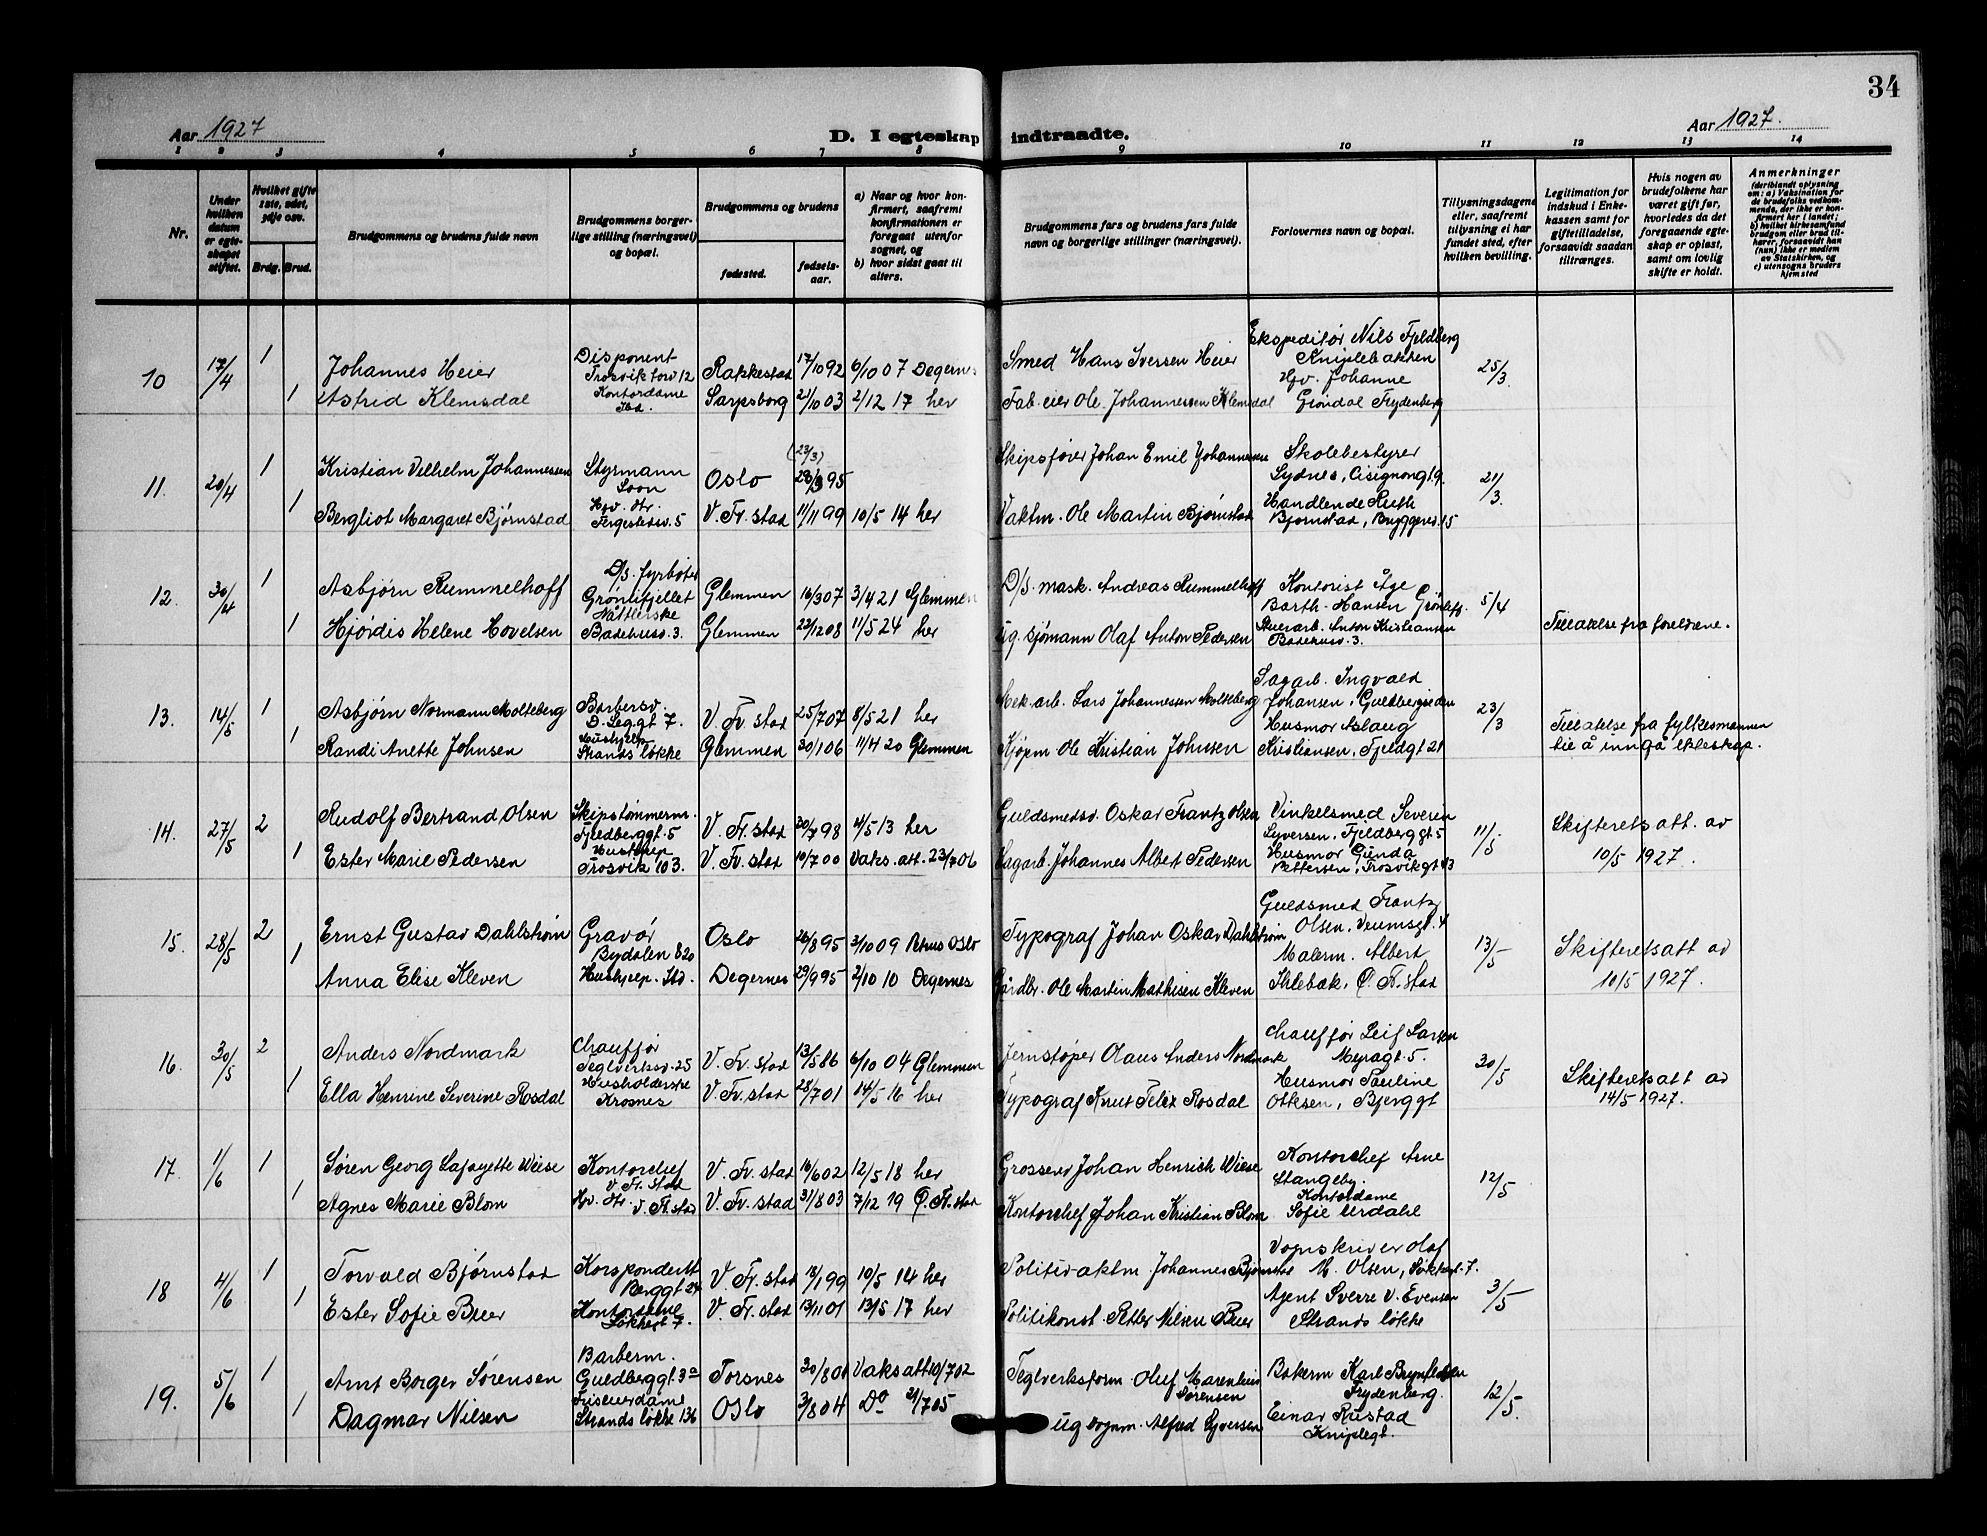 34
Aar 1927
D. I egteskap indtraadte.
Aar 1927.
1 2 3 4 5 6 7 8 9 10 11 12 13 14
Nr.
Under hvilken datum er egteskapet stiftet.
Hvilket gifte 1ste, 2det, 3dje osv.
Brdg. Brud.
Brudgommens og brudens fulde navn
Brudgommens borgerlige stilling (næringsvei) og bopæl.
Brudgommens og brudens
fødested. fødselsaar.
a) Naar og hvor konfirmert, saafremt konfirmationen er foregaat utenfor sognet, og
b) hvor sidst gaat til alters.
Brudgommens fars og brudens fars fulde navn og borgerlige stillinger (næringsvei).
Forlovernes navn og bopæl.
Tillysningsdagene eller, saafremt tillysning ei har fundet sted, efter hvilken bevilling.
Legitimation for indskud i Enkekassen samt for giftetilladelse, forsaavidt saadan tiltrænges.
Hvis nogen av brudefolkene har været gift før, hvorledes da det foregaaende egteskap er opløst, samt om lovlig skifte er holdt.
Anmerkninger
(deriblandt oplysning om: a) Vaksination for de brudefolks vedkommende, der ikke er konfirmert her i landet; b) hvilket kirkesamfund brudgom eller brud tilhører, forsaavidt han (hun) ikke er medlem av Statskirken, og c) utensogns bruders hjemsted
10 17/4 1 Johannes Heier Disponent Trosvik torv 12 Rakkestad 17/10 92 6/10 07 Degernes Smed Hans Iversen Heier Ekspeditør Nils Fjeldberg Kniplebakken 25/3
1 Astrid Klemsdal Kontordame Ibd. Sarpsborg 21/10 03 2/12 17 her Fab.eier Ole Johannessen Klemsdal Hv. Johanne Grøndal Frydenberg
11. 20/4 1 Kristian Vilhelm Johannessen Styrmann Soon Oslo (23/3) 28/3 95 Skipsfører Johan Emil Johannessen Skolebestyrer Sydnes, Cisignongt. 9. 21/3.
1 Bergliot Margaret Bjørnstad Hv. Dtr. Fergestedsv. 5 V. Fr. stad 11/11 99 10/5 14 her Vaktm. Ole Martin Bjørnstad Handlende Bjørnstad, Bryggeriv. 15
12. 30/4 1 Asbjørn Rummelhoff D/s. fyrbøter Grønlifjellet Glemmen 16/3 07 3/4 21 Glemmen D/s. mask. Andreas Rummelhoff Kontorist Åge Barth-Hansen Grønlifj. 5/4
1 Hjørdis Helene Hovelsen Badehusv. 3. Glemmen 22/12 08 11/5 24 her ug. sjømann Olaf Anton Pedersen Anton Kristiansen Badehusv. 3. Tillatelse fra foreldrene.
13. 14/5 1 Asbjørn Normann Molteberg Barbersv. D. Leg.gt 7. V. Fr stad 25/7 07 8/5 21 her Mek. arb. Lars Johannessen Molteberg Sagarb. Ingvald Johansen, Guldbergsiden 23/3 Tillatelse fra fylkesmannen til å inngå ekteskap.
1 Randi Anette Johnsen Hushjelp Strands løkke Glemmen 30/1 06 11/4 20 Glemmen Kjøpm Ole Kristian Johnsen Husmor Aslaug Kristiansen, Fjeldgt 21
14. 27/5 2 Rudolf Bertrand Olsen Skipstømmerm. Fjeldberggt. 5 V. Fr. stad 20/7 98 4/5 13 her Guldsmedsv. Oskar Frantz Olsen Vinkelsmed Severin Syversen, Fjeldberggt 5 11/5 Skifteretsatt. av 10/5 1927.
1 Ester Marie Pedersen Hushjelp Trosvik 103. V. Fr. stad 10/7 00 Vaks.att. 23/7 06 Sagarb. Johannes Albert Pedersen Husmor Gunda Pettersen, Trosvikgt 43
15. 28/5 2 Ernst Gustav Dahlstrøm Gravør Bydalen 820 Oslo 26/8 95 3/10 09 Petrus Oslo Typograf Johan Oskar Dahlstrøm Guldsmed Frantz Olsen, Veumsgt. 4 13/5 Skifteretsatt av 10/5 1927.
1 Anna Elise Kleven Hushjelp. Ibd. Degernes 29/9 95 2/10 10 Degernes Gårdbr. Ole Martin Mathisen Kleven Malerm. Albert Ihlebæk, Ø. Fr. stad
16. 30/5 2 Anders Nordmark Chauffør Teglverksv. 25 V. Fr. stad 13/5 86 6/10 04 Glemmen Jernstøper Olaus Anders Nordmark Chauffør Leif Larsen Myragt. 5. 30/5 Skifteretsatt av 14/5 1927.
1 Ella Henrine Severine Rosdal Husholderske Krosnes V. Fr. stad 28/7 01 14/5 16 her Typograf Knut Felix Rosdal Husmor Pauline Ottesen, Bjerggt
17. 1/6 1 Søren Georg Lafayette Wiese Kontorchef V. Fr. stad V. Fr. stad 16/6 02 12/5 18 her Grosserer Johan Henrich Wiese Kontorchef Arne Stangeby. 12/5
1 Agnes Marie Blom Hv. Dtr V. Fr. stad V. Fr. stad 31/8 03 7/12 19 Ø. Fr. stad Kontorchef Johan Kristian Blom Kontordame Sofie Urdahl
18 4/6 1 Torvald Bjørnstad Korspondent Berggt 24 V. Fr. stad 18/1 99 10/5 14 her Politivaktm Johannes Bjørnstad Vognskriver Olaf M. Olsen, Løkkegt. 7. 3/5
1 Ester Sofie Buer Kontordame Løkkegt 7. V. Fr. stad 13/11 01 13/5 17 her Politikonst. Petter Nilsen Buer Agent Sverre V. Evensen Strands løkke
19. 5/6 1 Arnt Borger Sørensen Barberm. Guldberggt. 3a Torsnes 30/8 01 Vaksatt 10/7 02 Teglverksform. Oluf Marenlius Sørensen Bakerm Karl Brynildsen Frydenberg. 12/5.
1 Dagmar Nilsen Friseurdame Strands løkke 136 Oslo 3/8 04 Do 4/7 05 ug vognm. Alfred Syversen Einar Rustad Kniplegt.